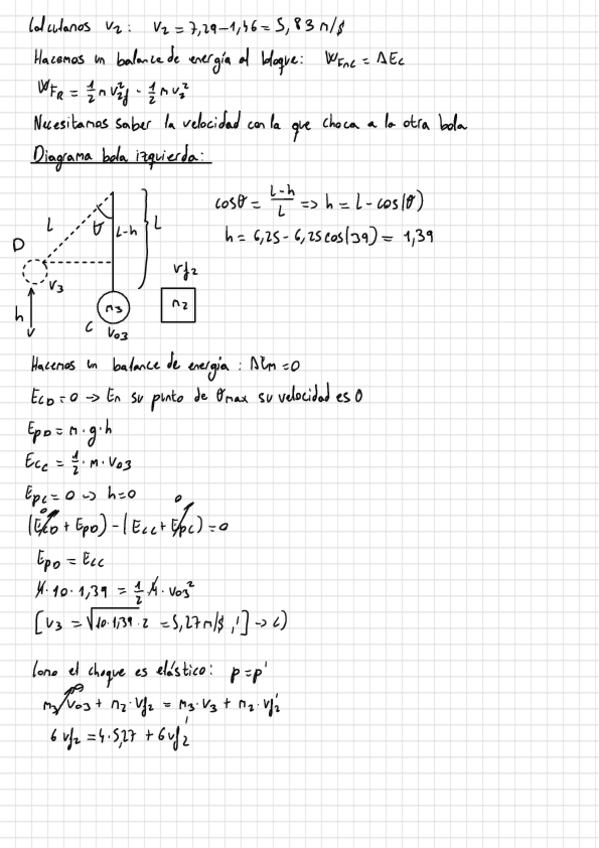 Calculamos v₂: v₂ = 7,29 - 1,46 = 5,83 m/s
Hacemos un balance de energía al bloque: W_FNC = ΔEc
W_FR = 1/2 m v₂f² - 1/2 m v₂²
Necesitamos saber la velocidad con la que choca a la otra bola
Diagrama bola izquierda:
cosθ = (L-h)/L => h = L - cos(θ)
h = 6,25 - 6,25 cos(39) = 1,39
L
θ
L-h
L
D
v₃
vf₂
h
m₃
m₂
C
v₀₃
Hacemos un balance de energía: ΔEm = 0
E_CD = 0 → En su punto de θmax su velocidad es 0
E_PD = m·g·h
E_CC = 1/2·m·v₀₃
E_PC = 0 → h = 0
0 0
(E_CD + E_PD) - (E_CC + E_PC) = 0
E_PD = E_CC
4·10·1,39 = 1/2·4·v₀₃²
[v₃ = √10·1,39·2 = 5,27 m/s ,'] → c)
Como el choque es elástico: p = p'
0
m₃ v₀₃ + m₂·vf₂ = m₃·v₃ + m₂·vf₂'
6 vf₂ = 4·5,27 + 6 vf₂'